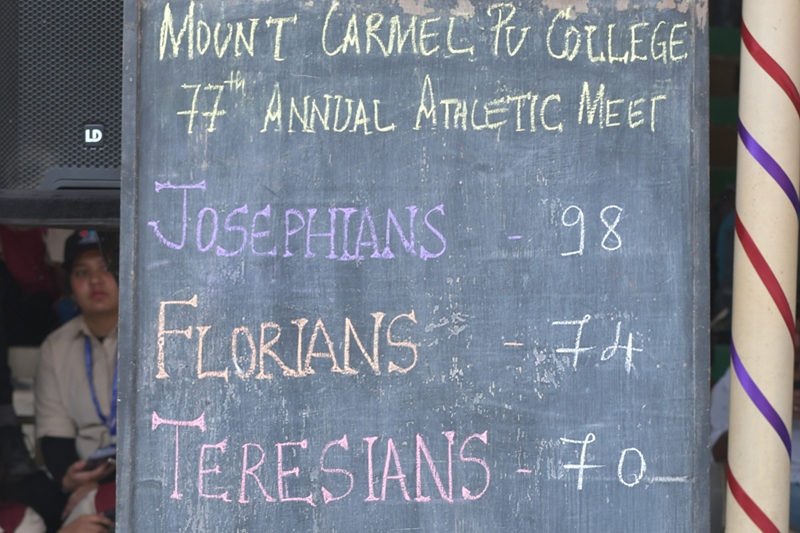 MOUNT CARMEL PU COLLEGE
77th ANNUAL ATHLETIC MEET
JOSEPHIANS - 98
FLORIANS - 74
TERESIANS - 70
LD